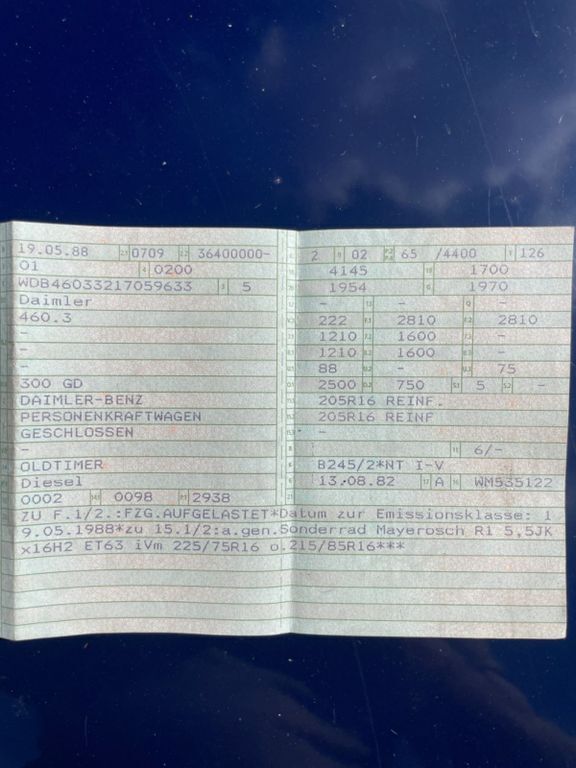 19.05.88 0709 36400000-
01 0200
WDB46033217059633 5
Daimler
460.3
-
-
-
300 GD
DAIMLER-BENZ
PERSONENKRAFTWAGEN
GESCHLOSSEN
-
OLDTIMER
Diesel
0002 0098 2938
2 02 65 /4400 126
4145 1700
1954 1970
- - -
222 2810 2810
1210 1600 -
1210 1600 -
88 - 75
2500 750 5 -
205R16 REINF.
205R16 REINF
-
6/-
B245/2*NT I-V
13.08.82 A WM535122
ZU F.1/2.:FZG.AUFGELASTET*Datum zur Emissionsklasse: 1
9.05.1988*zu 15.1/2:a.gen.Sonderrad Mayerosch R1 5,5JK
x16H2 ET63 iVm 225/75R16 o.215/85R16***